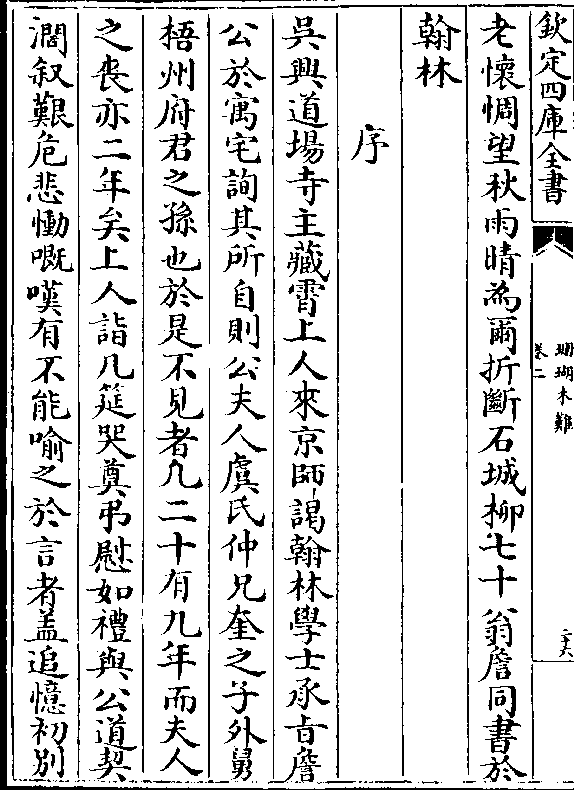 欽定四庫全書
珊瑚木難
卷二
老懷惆望秋雨晴為爾折斷石城柳七十翁詹同書於
翰林
序
吳興道場寺主藏霄上人來京師謁翰林學士承旨詹
公於寓宅詢其所自則公夫人虞氏仲兄奎之子外舅
梧州府君之孫也於是不見者凡二十有九年而夫人
之喪亦二年矣上人詣几筵哭奠弔慰如禮與公道契
濶叙艱危悲慟嘅嘆有不能喻之於言者盖追憶初別